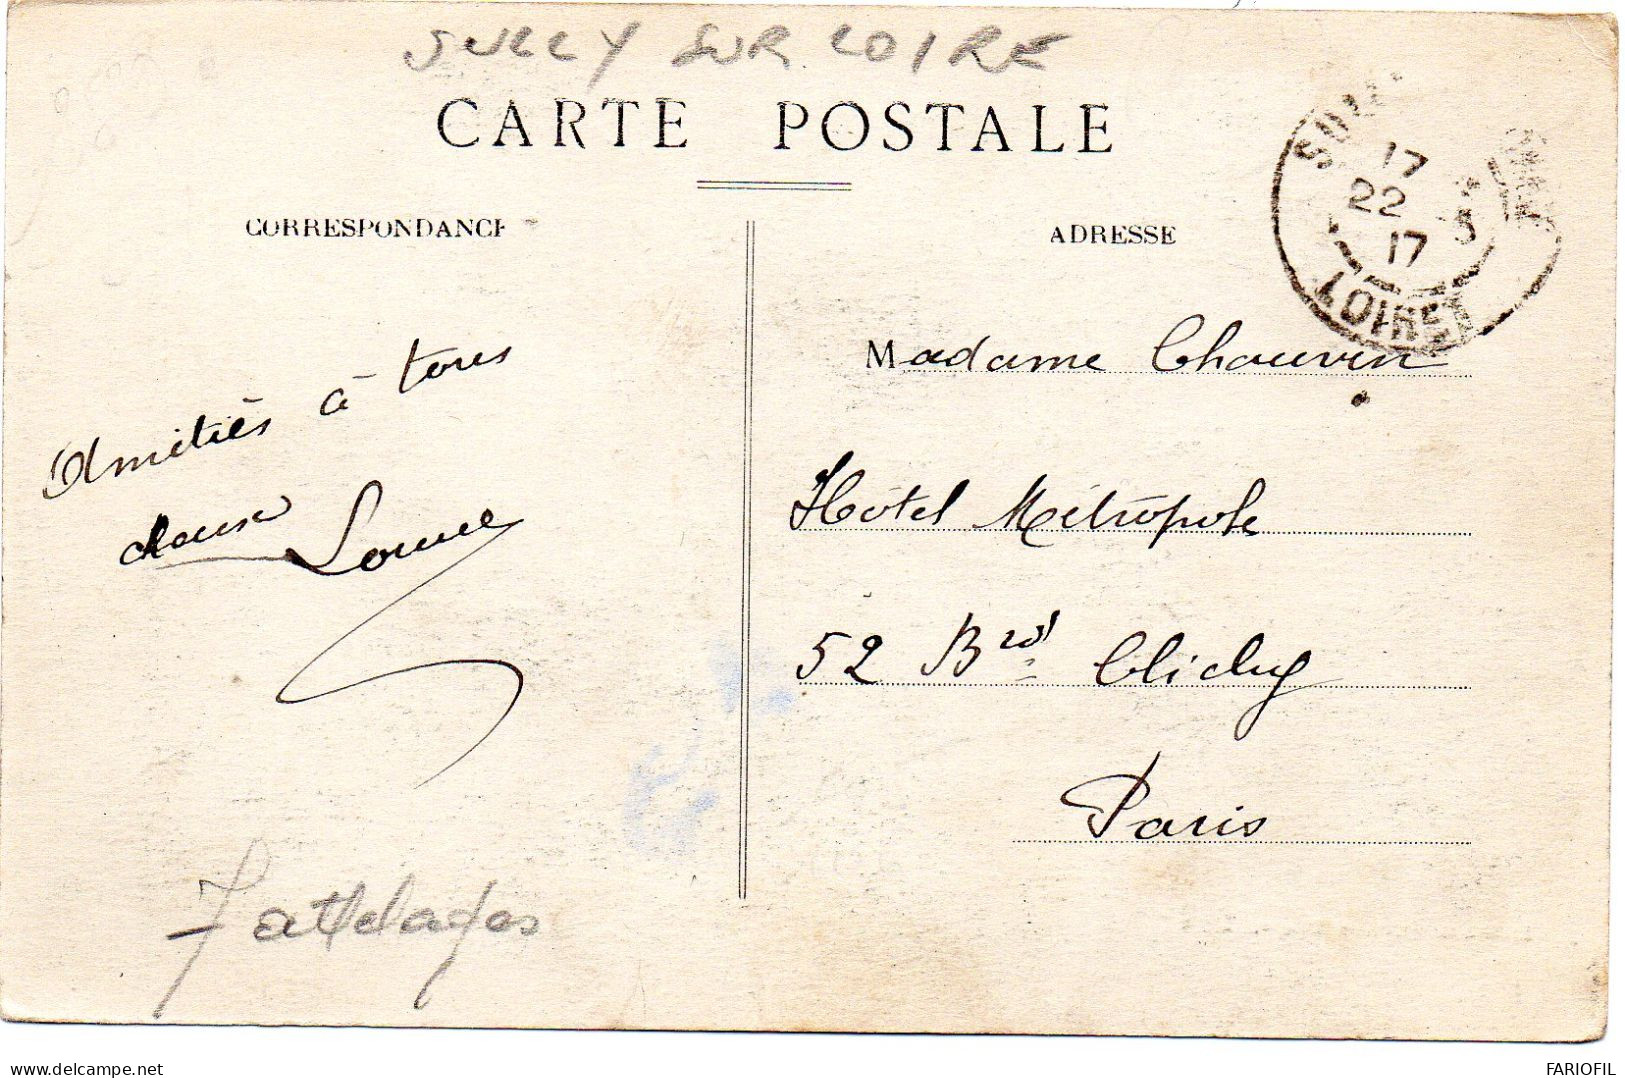 SULLY SUR LOIRE
CARTE POSTALE
CORRESPONDANCE
ADRESSE
17
22 5
17
LOIRET
Amitiés à tous
Madame Chauvin
Hôtel Métropole
52 Brd Clichy
Paris
7 attelages
www.delcampe.net
FARIOFIL